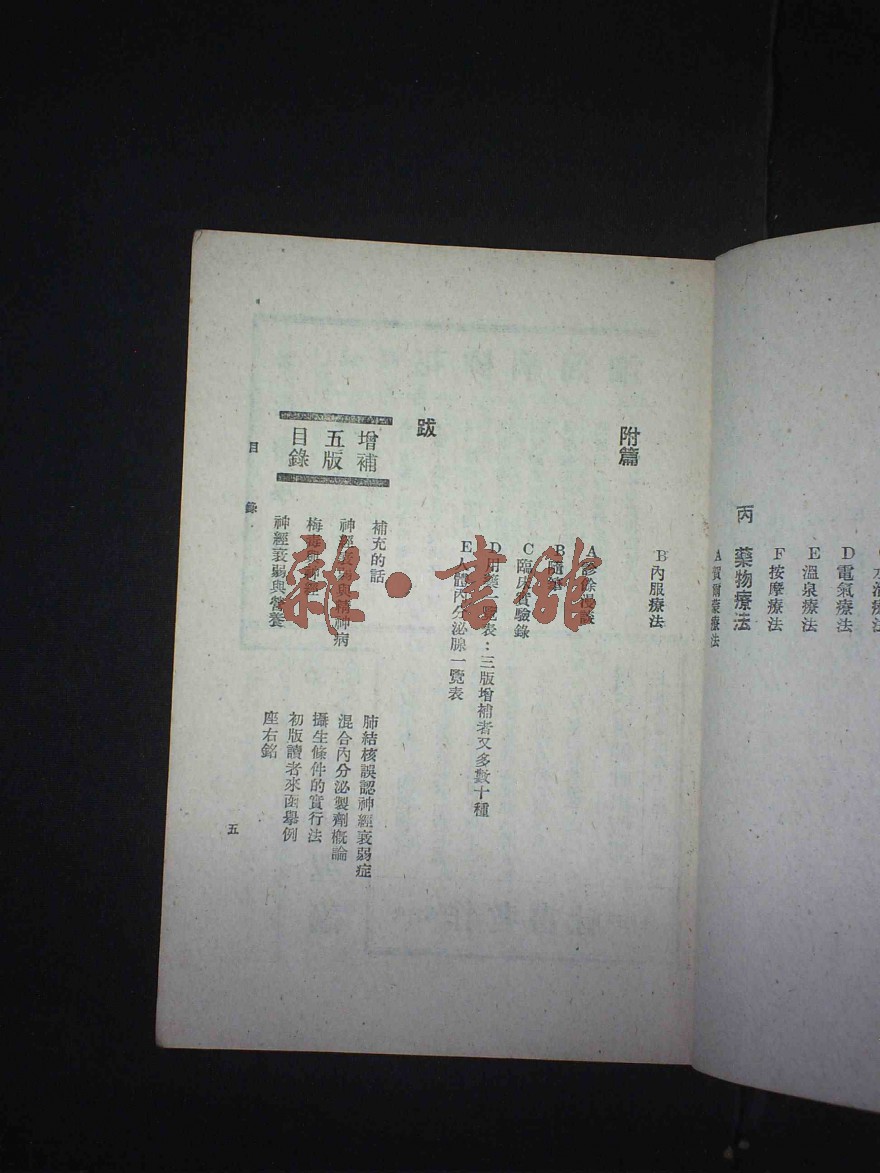 C 水治療法
D 電氣療法
E 溫泉療法
F 按摩療法
丙 藥物療法
A 賀爾蒙療法
B 內服療法
附篇
A 診餘漫談
B 隨筆
C 臨床實驗錄
D 用藥一覽表：三版增補者又多數十種
E 人體內分泌腺一覽表
跋
增補
五版
目錄
補充的話
神經衰弱與精神病
梅毒與神經
神經衰弱與營養
肺結核誤認神經衰弱症
混合內分泌製劑概論
攝生條件的實行法
初版讀者來函舉例
座右銘
目 錄
五
雜·書館